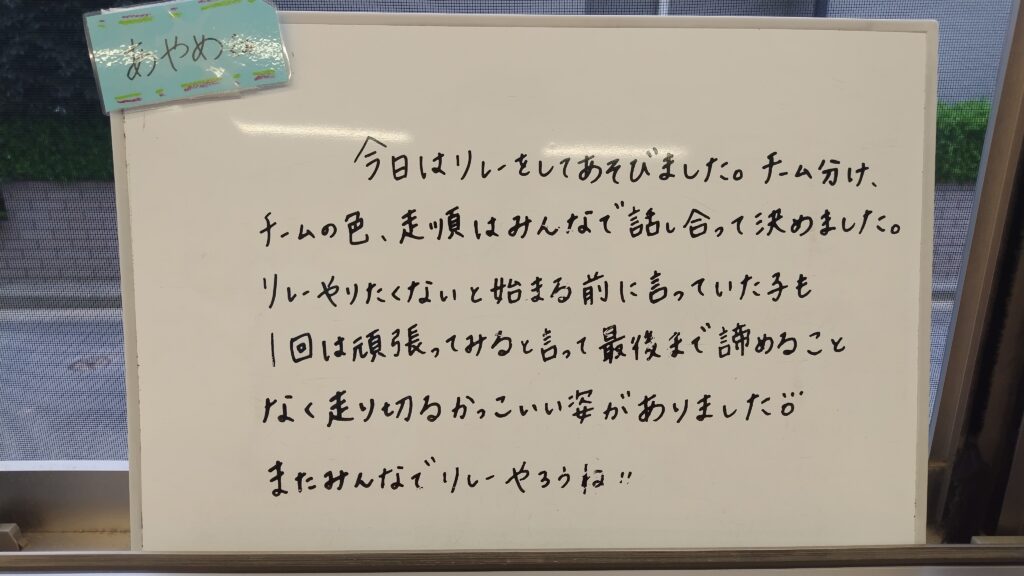 あやめ
今日はリレーをしてあそびました。チーム分け、
チームの色、走順はみんなで話し合って決めました。
リレーやりたくないと始まる前に言っていた子も
1回は頑張ってみると言って最後まで諦めること
なく走り切るかっこいい姿がありました
またみんなでリレーやろうね!!